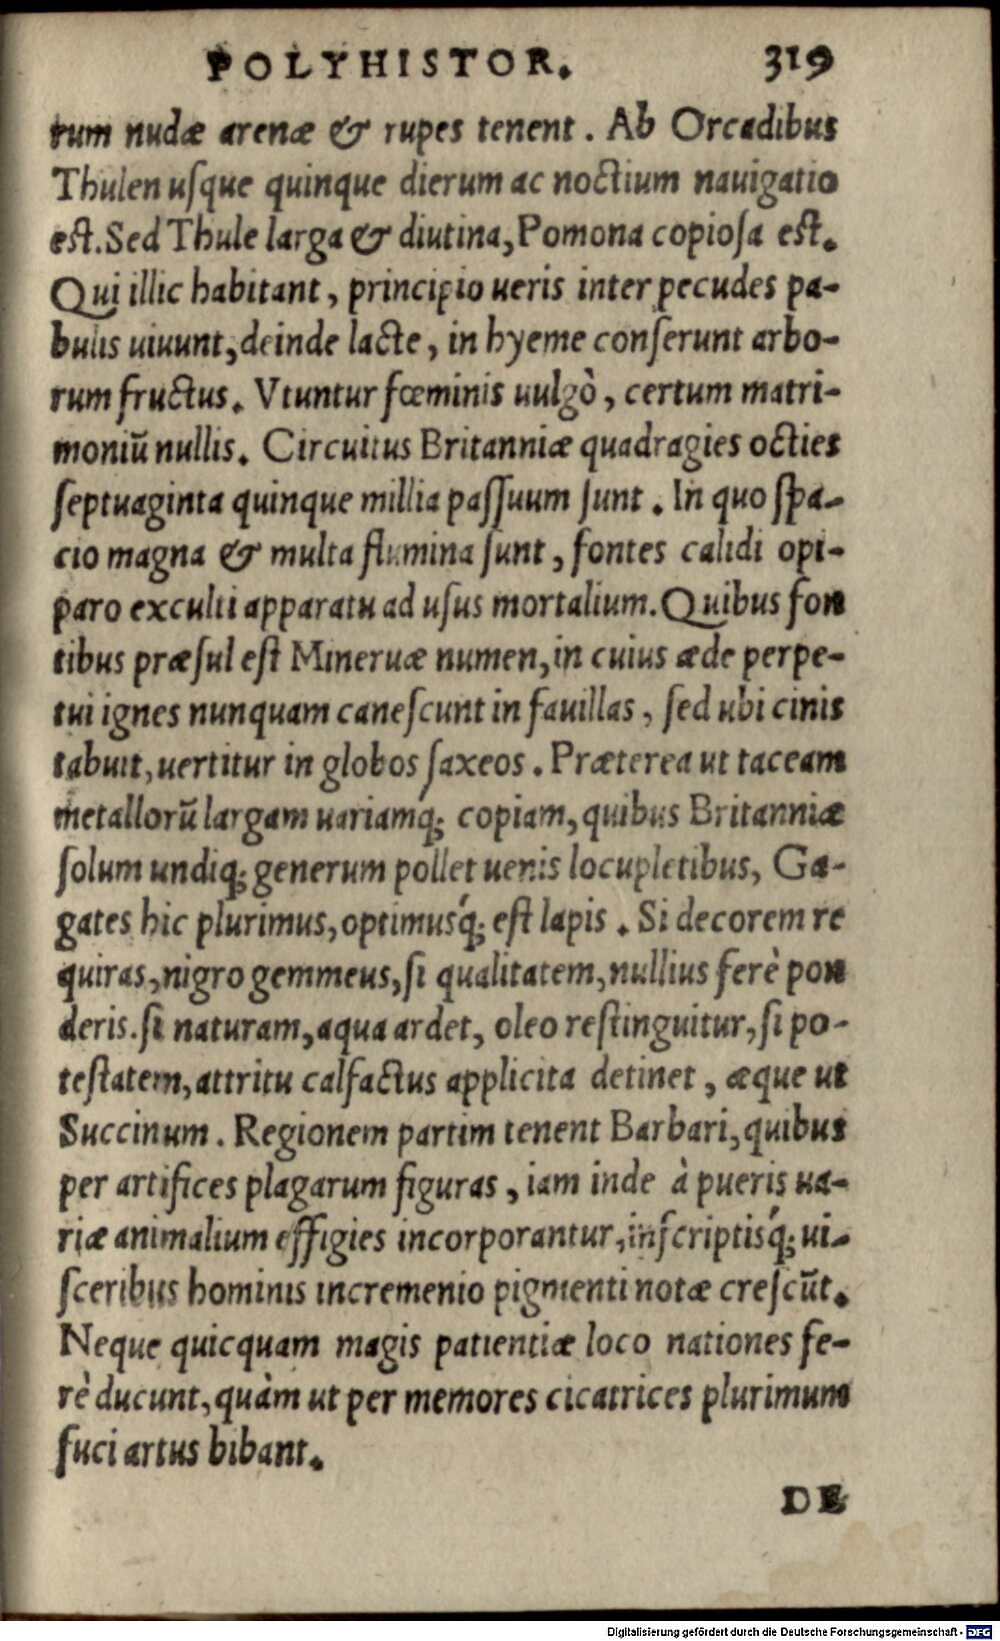 POLYHISTOR. 319
rum nudæ arenæ & rupes tenent. Ab Orcadibus
Thulen usque quinque dierum ac noctium nauigatio
est. Sed Thule larga & diutina, Pomona copiosa est.
Qui illic habitant, principio ueris inter pecudes pa-
bulis uiuunt, deinde lacte, in hyeme conserunt arbo-
rum fructus. Vtuntur fœminis uulgò, certum matri-
moniū nullis. Circuitus Britanniæ quadragies octies
septuaginta quinque millia passuum sunt. In quo spa-
cio magna & multa flumina sunt, fontes calidi opi-
paro exculti apparatu ad usus mortalium. Quibus fon
tibus præsul est Mineruæ numen, in cuius æde perpe-
tui ignes nunquam canescunt in fauillas, sed ubi cinis
tabuit, uertitur in globos saxeos. Præterea ut taceam
metallorū largam uariamq; copiam, quibus Britanniæ
solum undiq; generum pollet uenis locupletibus, Ga-
gates hic plurimus, optimusq́; est lapis. Si decorem re
quiras, nigro gemmeus, si qualitatem, nullius ferè pon
deris. si naturam, aqua ardet, oleo restinguitur, si po-
testatem, attritu calfactus applicita detinet, æque ut
Succinum. Regionem partim tenent Barbari, quibus
per artifices plagarum figuras, iam inde à pueris ua-
riæ animalium effigies incorporantur, inscriptisq́; ui-
sceribus hominis incremenio pigmenti notæ crescūt.
Neque quicquam magis patientiæ loco nationes fe-
rè ducunt, quàm ut per memores cicatrices plurimum
fuci artus bibant.
DE
Digitalisierung gefördert durch die Deutsche Forschungsgemeinschaft - DFG